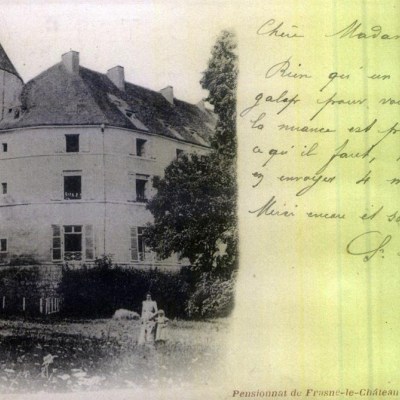 Chère Madam
Rien qu'un
galop pour vou
la nuance est
a qu'il faut,
envoyez 4 m
Merci encore et
Pensionnat de Frasne-le-Château